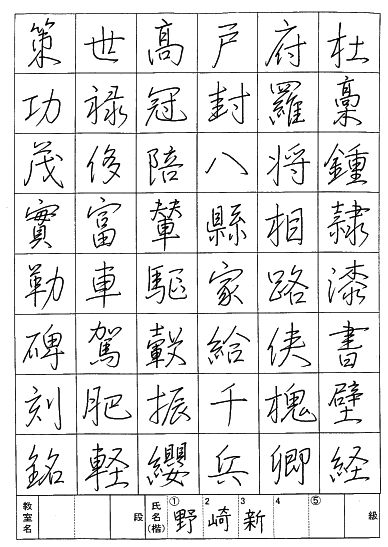 杜稾鍾隷漆書壁経
府羅将相路侠槐卿
戸封八縣家給千兵
高冠陪輦驅轂振纓
世禄侈富車駕肥軽
策功茂實勒碑刻銘
教室名 段 氏名(楷) ①野 2崎 3新 4 ⑤ 級